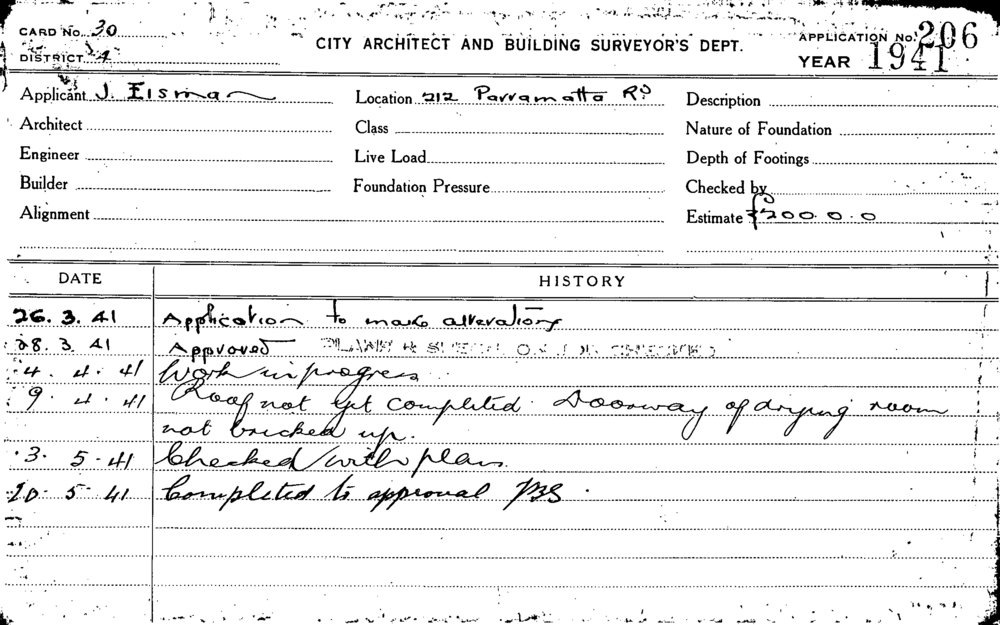 CARD No. 30
DISTRICT 4
CITY ARCHITECT AND BUILDING SURVEYOR'S DEPT.
APPLICATION No. 206
YEAR 1941
Applicant J. Eisman
Location 212 Parramatta Rd
Description
Architect
Class
Nature of Foundation
Engineer
Live Load
Depth of Footings
Builder
Foundation Pressure
Checked by
Alignment
Estimate £200.0.0
DATE HISTORY
26.3.41 Application to make alterations
28.3.41 Approved
4.4.41 Work in progress
9.4.41 Roof not yet completed. Doorway of drying room
not bricked up.
3.5.41 Checked with plan.
10.5.41 Completed to approval